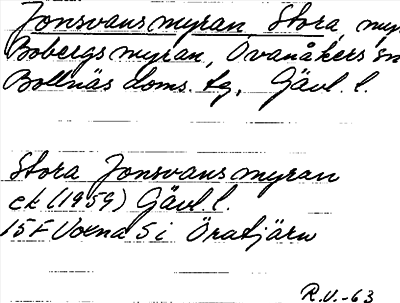 Jonsvansmyran, Stora, myr
Bobergsmyran, Ovanåkers sn
Bollnäs doms. tg, Gävl. l.
Stora Jonsvansmyran
ek (1959) Gävl. l.
15F Voxna 5i Öratjärn
R.V.-63